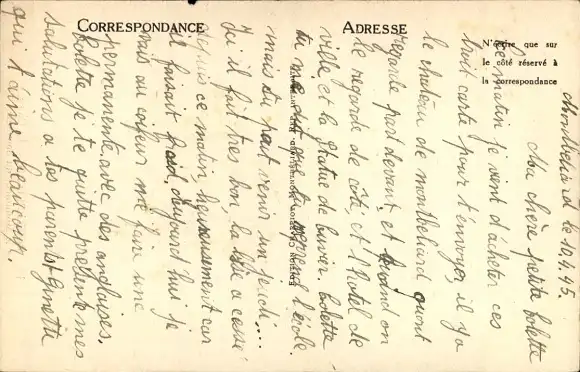 CORRESPONDANCE
ADRESSE
N'écrire que sur
le côté réservé à
la correspondance
Montbéliard le 10.4.45.
Ma chère petite Colette
Ce matin je vient d'acheter ces
trois carte pour t'envoyer, il y a
le chateau de montbeliard quant
regarde part devant, et quand on
le regarde de côté, et l'hotel de
ville, et la statue de cuvier. Colette
tu me dit que tu reprend l'école
mais tu peut venir un jeudi...
Ici il fait très bon, la bise a cessé
depuis ce matin, heureusement car
il faisait froid, aujourd'hui je
vais au coifeur me faire une
permanente avec des anglaises.
Colette je te quitte présente mes
salutations a tes parents Ginette
qui t'aime beaucoup.